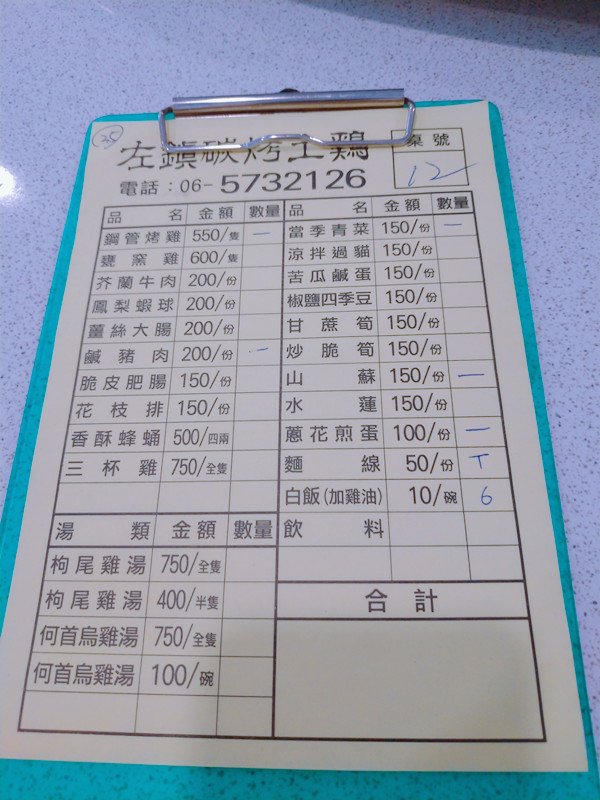 35
左鎮碳烤土鷄
桌號
12
電話：06-5732126
品名 金額 數量
鋼管烤雞 550/隻 一
甕窯雞 600/隻
芥蘭牛肉 200/份
鳳梨蝦球 200/份
薑絲大腸 200/份
鹹豬肉 200/份 一
脆皮肥腸 150/份
花枝排 150/份
香酥蜂蛹 500/四兩
三杯雞 750/全隻
湯類 金額 數量
枸尾雞湯 750/全隻
枸尾雞湯 400/半隻
何首烏雞湯 750/全隻
何首烏雞湯 100/碗
品名 金額 數量
當季青菜 150/份 一
涼拌過貓 150/份
苦瓜鹹蛋 150/份
椒鹽四季豆 150/份
甘蔗筍 150/份
炒脆筍 150/份
山蘇 150/份 一
水蓮 150/份
蔥花煎蛋 100/份 一
麵線 50/份 T
白飯(加雞油) 10/碗 6
飲料
合計